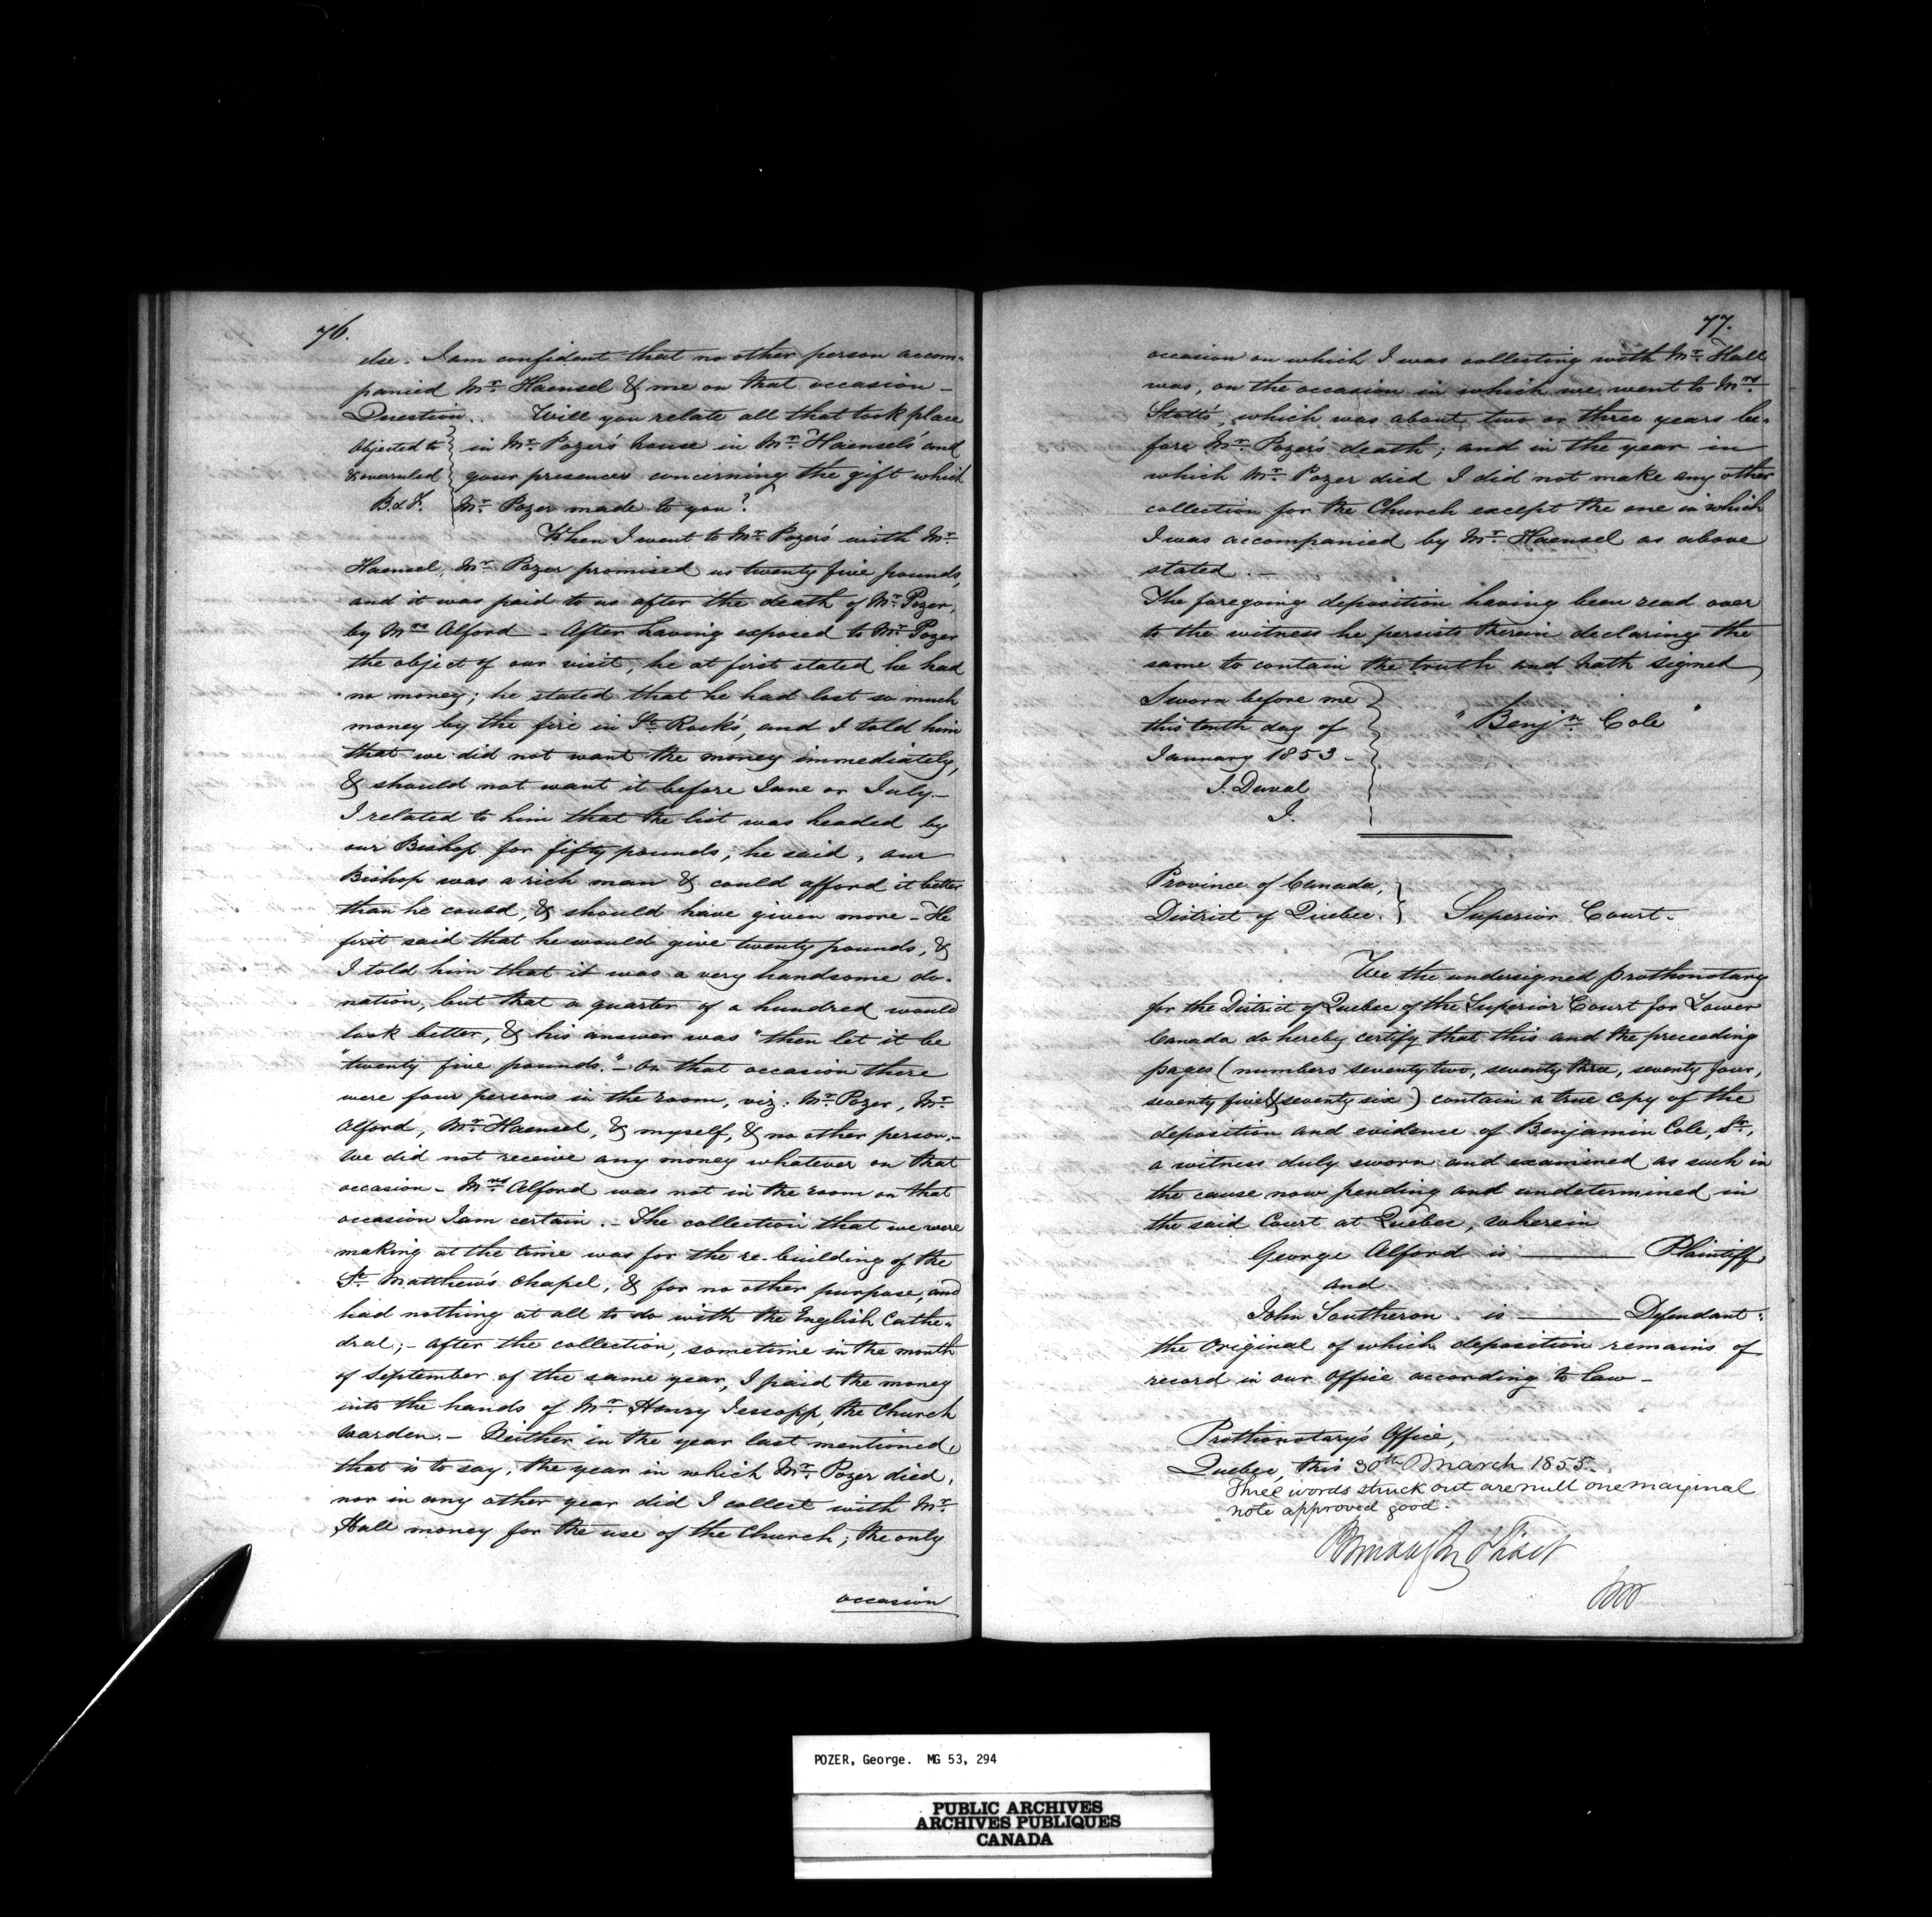 76.
else. I am confident that no other person accom-
panied Mr. Haensel & me on that occasion -
Question. Will you relate all that took place
Objected to in Mr. Pozer's house in Mr. Haensel's and
& overruled your presences concerning the gift which
B. & F. Mr. Pozer made to you?
When I went to Mr. Pozer's with Mr.
Haensel, Mr. Pozer promised us twenty five pounds,
and it was paid to us after the death of Mr. Pozer,
by Mrs Alford - After having exposed to Mr. Pozer
the object of our visit, he at first stated he had
no money; he stated that he had lost so much
money by the fire in St. Rock's, and I told him
that we did not want the money immediately,
& should not want it before June or July. -
I related to him that the list was headed by
our Bishop for fifty pounds; he said, our
Bishop was a rich man & could afford it better
than he could, & should have given more - He
first said that he would give twenty pounds, &
I told him that it was a very handsome do-
nation, but that a quarter of a hundred would
look better, & his answer was "then let it be
"twenty five pounds." - On that occasion there
were four persons in the room, viz: Mr. Pozer, Mr.
Alford, Mr. Haensel, & myself, & no other person. -
We did not receive any money whatever on that
occasion - Mrs Alford was not in the room on that
occasion I am certain. - The collection that we were
making at the time was for the re-building of the
St. Matthew's Chapel, & for no other purpose, and
had nothing at all to do with the English Cathe-
dral; - After the collection, sometime in the month
of September of the same year, I paid the money
into the hands of Mr. Henry Jessopp, the Church
Warden. - Neither in the year last mentioned,
that is to say, the year in which Mr. Pozer died,
nor in any other year did I collect with Mr.
Hall money for the use of the Church; the only
occasion
77.
occasion on which I was collecting with Mr. Hall
was, on the occasion in which we went to Mrs.
Stott's, which was about two or three years be-
fore Mr. Pozer's death; and in the year in
which Mr. Pozer died I did not make any other
collection for the Church except the one in which
I was accompanied by Mr. Haensel as above
stated. -
The foregoing deposition having been read over
to the witness he persists therein declaring the
same to contain the truth and hath signed
Sworn before me
this tenth day of "Benjn. Cole"
January 1853 -
J. Duval
J.
Province of Canada,
District of Quebec. Superior Court.
We the undersigned prothonotary
for the District of Quebec of the Superior Court for Lower
Canada do hereby certify that this and the preceeding
pages (numbers seventy two, seventy three, seventy four,
seventy five & seventy six) contain a true copy of the
deposition and evidence of Benjamin Cole, Sr.,
a witness duly sworn and examined as such in
the cause now pending and undetermined in
the said Court at Quebec, wherein
George Alford is Plaintiff,
and
John Southeron is Defendant:
the original of which deposition remains of
record in our Office according to law -
Prothonotary's Office,
Quebec, this 30th March 1855.
Three words struck out are null one marginal
note approved good.
POZER, George. MG 53, 294
PUBLIC ARCHIVES
ARCHIVES PUBLIQUES
CANADA